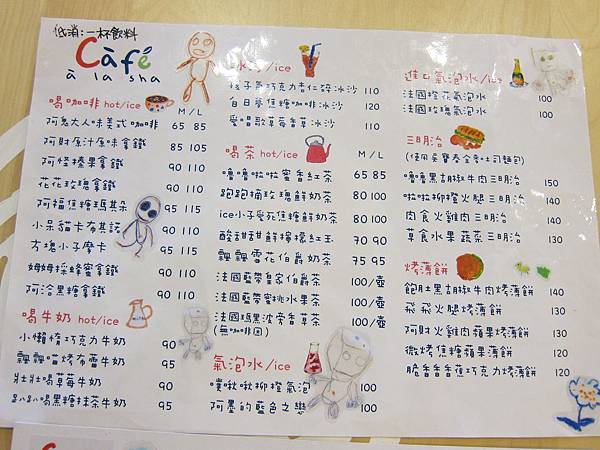 低消:一杯飲料
Càfé
à la sha
喝咖啡 hot/ice M/L
阿兔大人味美式咖啡 65 85
阿財原汁原味拿鐵 85 105
阿怪榛果拿鐵 90 110
花花玫瑰拿鐵 90 110
阿福焦糖瑪其朵 95 115
小呆貓卡布其諾 90 110
方塊小子摩卡 95 115
姆姆採蜂蜜拿鐵 90 110
阿洽黑糖拿鐵 90 110
喝牛奶 hot/ice
小懶惰巧克力牛奶 90
飄飄喵烤布蕾牛奶 95
壯壯喝草莓牛奶 90
趴趴喝黑糖抹茶牛奶 95
冰沙/ice
孩子氣巧克力杏仁碎冰沙 110
白日夢焦糖咖啡冰沙 120
愛唱歌草莓香草冰沙 110
喝茶 hot/ice M/L
嚕嚕啦啦蜜香紅茶 65 85
跑跑摘玫瑰鮮奶茶 80 100
ice小子愛死焦糖鮮奶茶 80 100
酸甜甜鮮檸檬紅玉 70 90
飄飄雪花伯爵奶茶 75 95
法國藍帶皇家伯爵茶 100/壺
法國藍帶蜜桃水果茶 100/壺
法國瑪黑波旁香草茶 100/壺
(無咖啡因)
氣泡水/ice
噗啾啾柳橙氣泡 100
阿墨的藍色之戀 100
進口氣泡水/ice
法國橙花氣泡水 100
法國玫瑰氣泡水 100
三明治
嚕嚕黑胡椒牛肉三明治 150
啦啦柳橙火腿三明治 140
肉食火雞肉三明治 140
草食水果蔬菜三明治 130
烤薄餅
飽肚黑胡椒牛肉烤薄餅 140
飛飛火腿烤薄餅 130
阿財火雞肉蘋果烤薄餅 130
微烤焦糖蘋果薄餅 120
脆香香香蕉巧克力烤薄餅 120